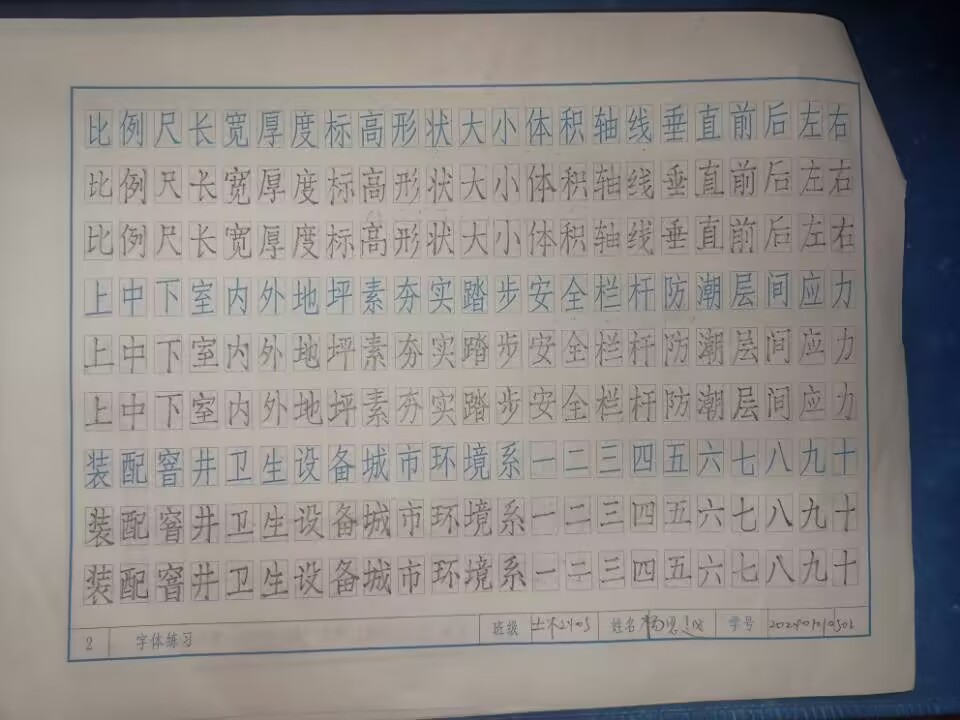 比例尺长宽厚度标高形状大小体积轴线垂直前后左右
比例尺长宽厚度标高形状大小体积轴线垂直前后左右
比例尺长宽厚度标高形状大小体积轴线垂直前后左右
上中下室内外地坪素夯实踏步安全栏杆防潮层间应力
上中下室内外地坪素夯实踏步安全栏杆防潮层间应力
上中下室内外地坪素夯实踏步安全栏杆防潮层间应力
装配窨井卫生设备城市环境系一二三四五六七八九十
装配窨井卫生设备城市环境系一二三四五六七八九十
装配窨井卫生设备城市环境系一二三四五六七八九十
2 字体练习 班级 土木2405 姓名 学号